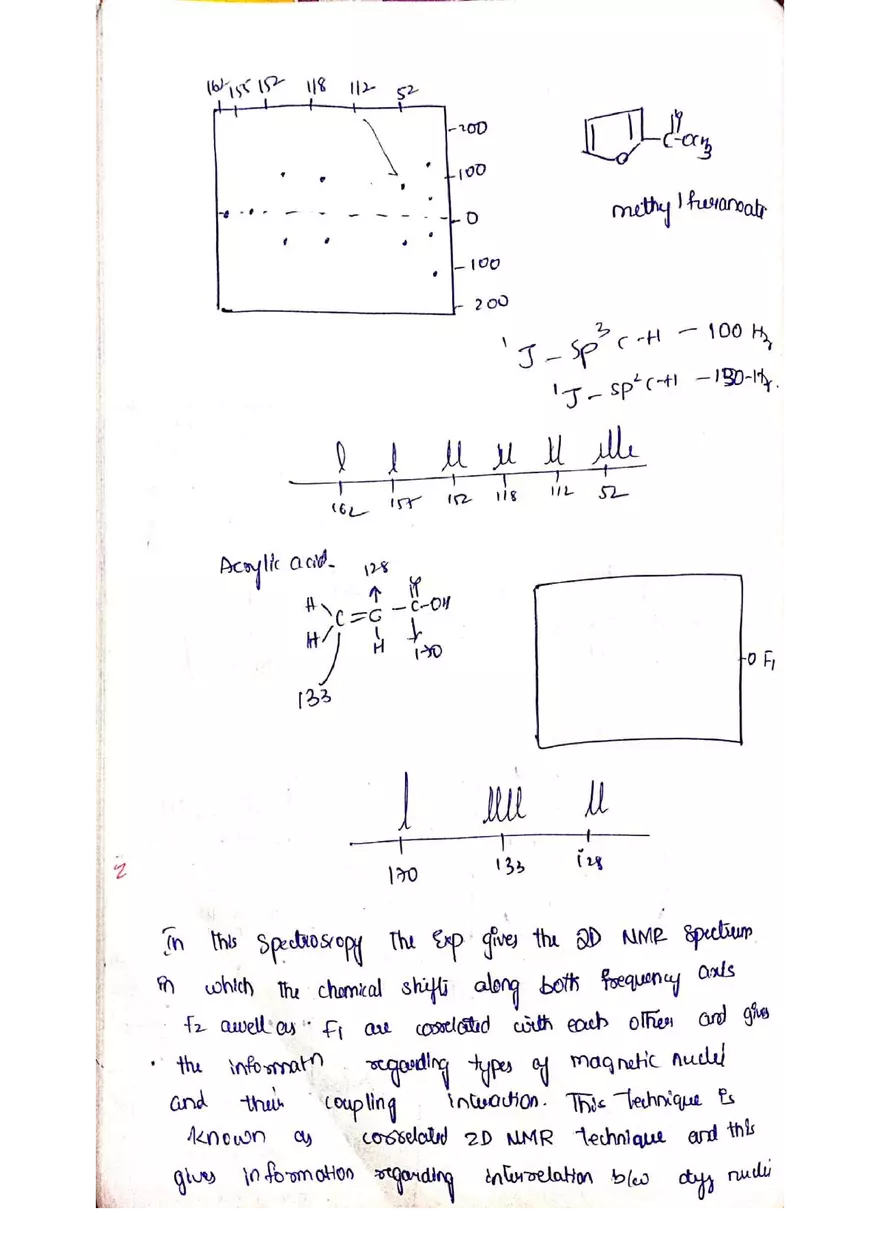 162 155 152 118 112 52
200
100
0
-100
200
C-OCH3
O
methyl furanoate
1J - Sp3 C-H - 100 Hz
1J - sp2 C-H - 130-Hz.
162 155 152 118 112 52
Acrylic acid-
128
H O
C=C-C-OH
H H
170
133
0 F1
170 133 128
2
In this Spectroscopy The Exp gives the 2D NMR Spectrum
in which the chemical shifts along both frequency axis
f2 awell as F1 are correlated with each other and gives
the informatn regarding types of magnetic nuclei
and their coupling interaction. This Technique is
known as correlated 2D NMR technique and this
gives information regarding interrelation b/w nuclei